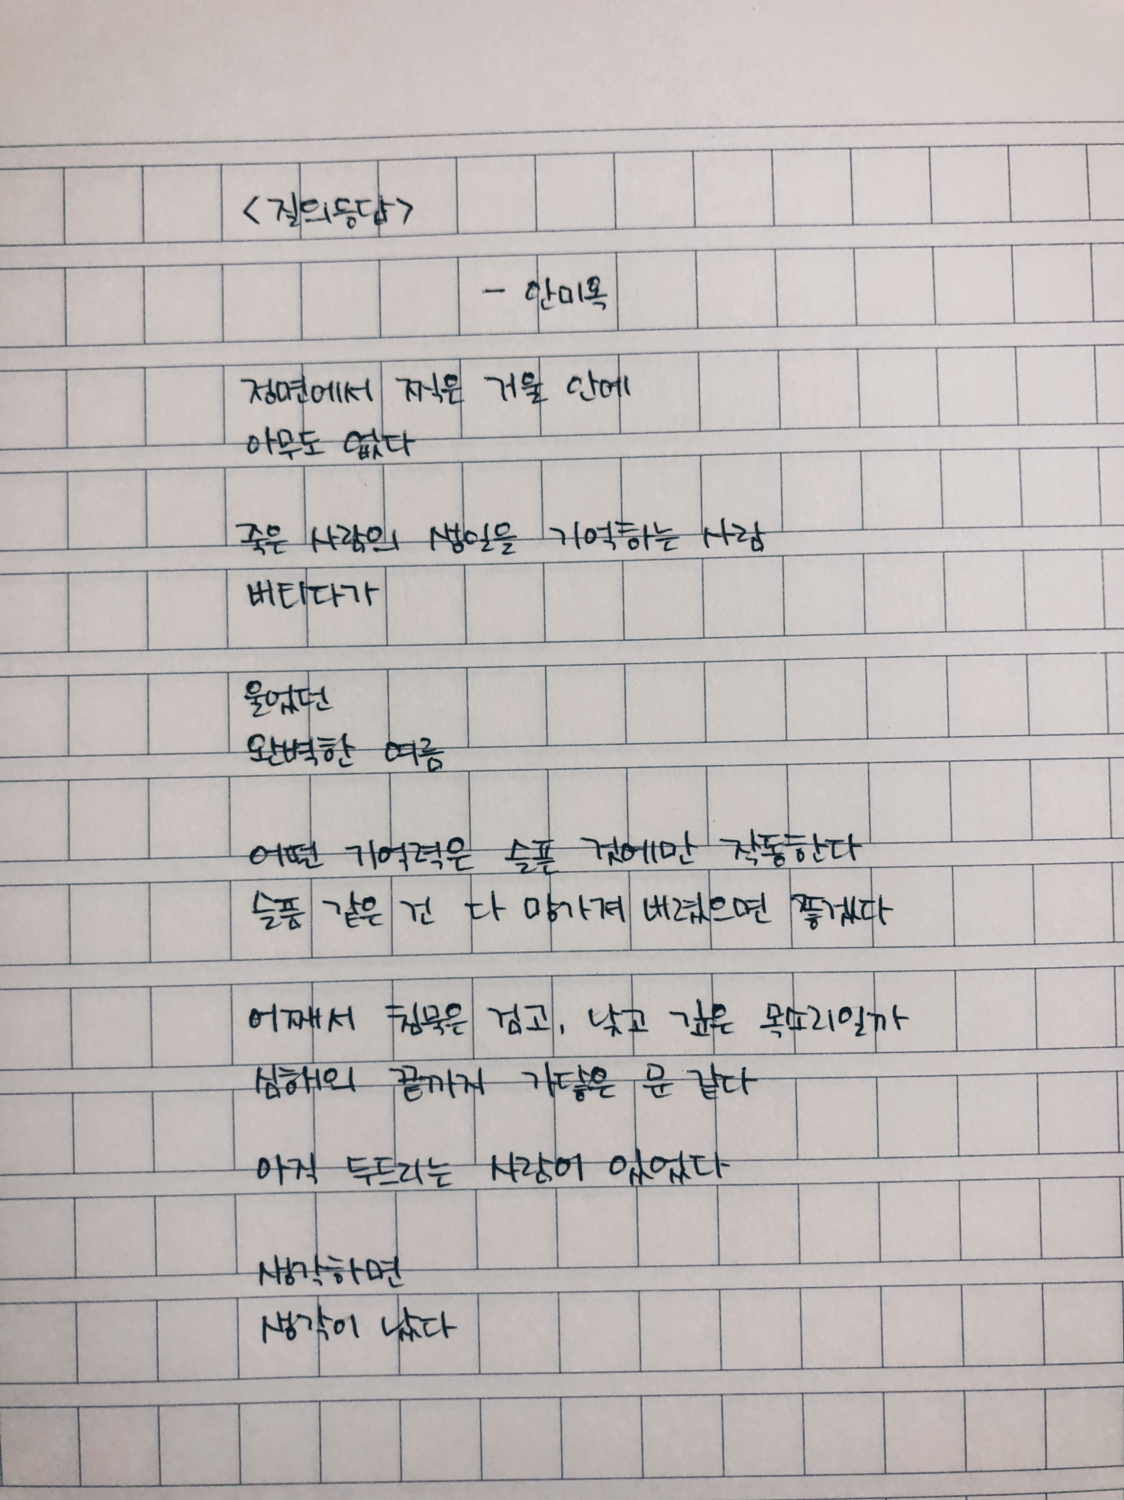 <질의응답>
- 안미옥
정면에서 찍은 거울 안에
아무도 없다
죽은 사람의 생일을 기억하는 사람
버티다가
울었던
완벽한 여름
어떤 기억력은 슬픈 것에만 작동한다
슬픔 같은 건 다 망가져 버렸으면 좋겠다
어째서 침묵은 검고, 낮고 깊은 목소리일까
심해의 끝까지 가닿은 문 같다
아직 두드리는 사람이 있었다
생각하면
생각이 났다